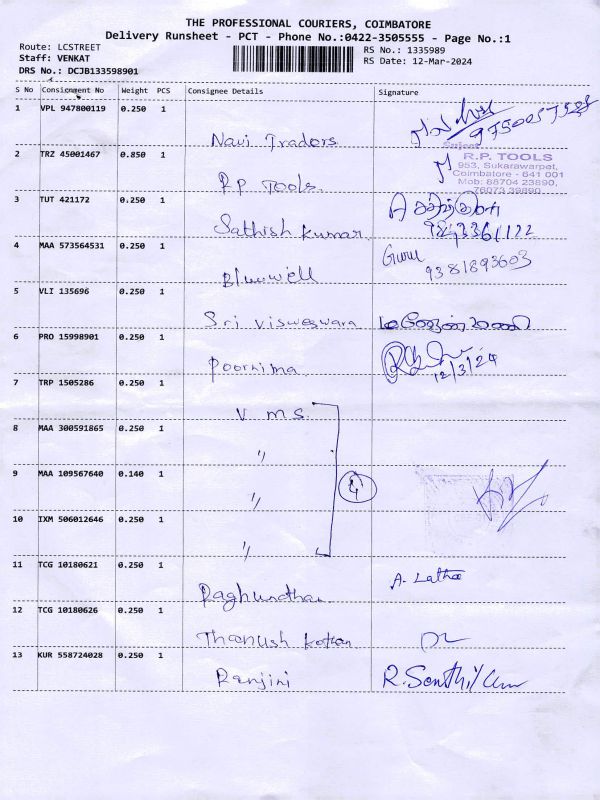 THE PROFESSIONAL COURIERS, COIMBATORE
Delivery Runsheet - PCT - Phone No.:0422-3505555 - Page No.:1
Route: LCSTREET
RS No.: 1335989
Staff: VENKAT
RS Date: 12-Mar-2024
DRS No.: DCJB133598901
S No Consignment No Weight PCS Consignee Details Signature
1 VPL 947800119 0.250 1
Navi Tradors
2 TRZ 45001467 0.850 1
R.P. TOOLS
953, Sukarawarpet,
Coimbatore - 641 001
Mob: 88704 23890,
76073 39890
R.P TOOLS
3 TUT 421172 0.250 1
Sathish kumar
4 MAA 573564531 0.250 1
Guru
9381893603
Bluewell
5 VLI 135696 0.250 1
Sri visweswara
6 PRO 15998901 0.250 1
Poornima
12/3/24
7 TRP 1505286 0.250 1
V M S.
8 MAA 300591865 0.250 1
"
9 MAA 109567640 0.140 1
"
4
10 IXM 506012646 0.250 1
"
11 TCG 10180621 0.250 1
A. Latha
12 TCG 10180626 0.250 1
13 KUR 558724028 0.250 1
Ranjini